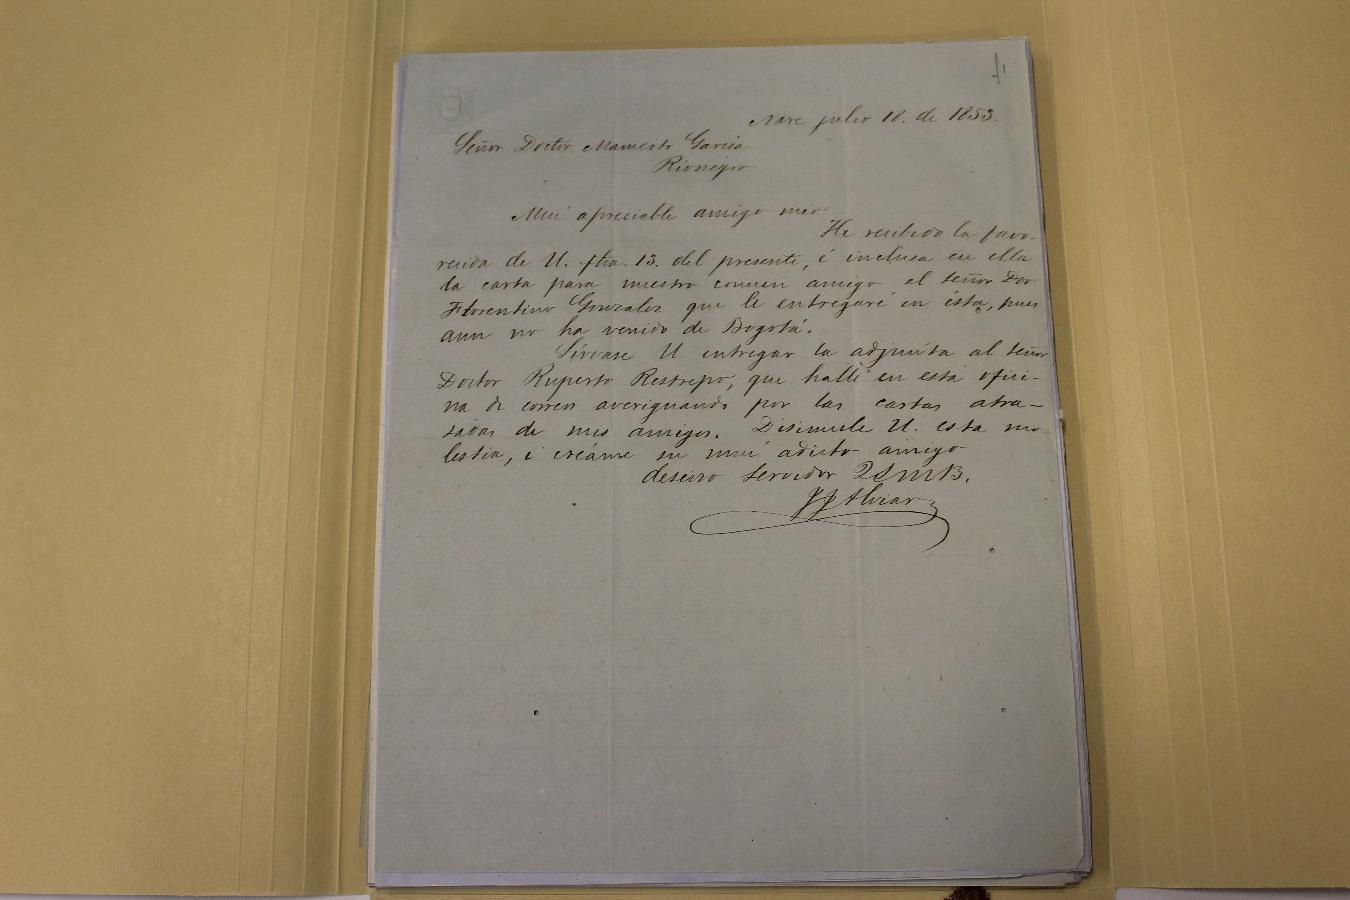 1
Nare julio 18. de 1853.
Señor Doctor Mamerto García
Rionegro
Mui apreciable amigo mio
He recibido la favo-
recida de U. fha. 13. del presente, é inclusa en ella
la carta para nuestro comun amigo el señor Dor
Florentino Gonzalez que le entregaré en ésta, pues
aun no ha venido de Bogotá.
Sírvase U entregar la adjunta al señor
Doctor Ruperto Restrepo, que hallé en esta ofici-
na de correos averiguando por las cartas atra-
sadas de mis amigos. Disimule U. esta mo-
lestia, i créame su mui adicto amigo
deseoso servidor QSMB.
JJ Alviar